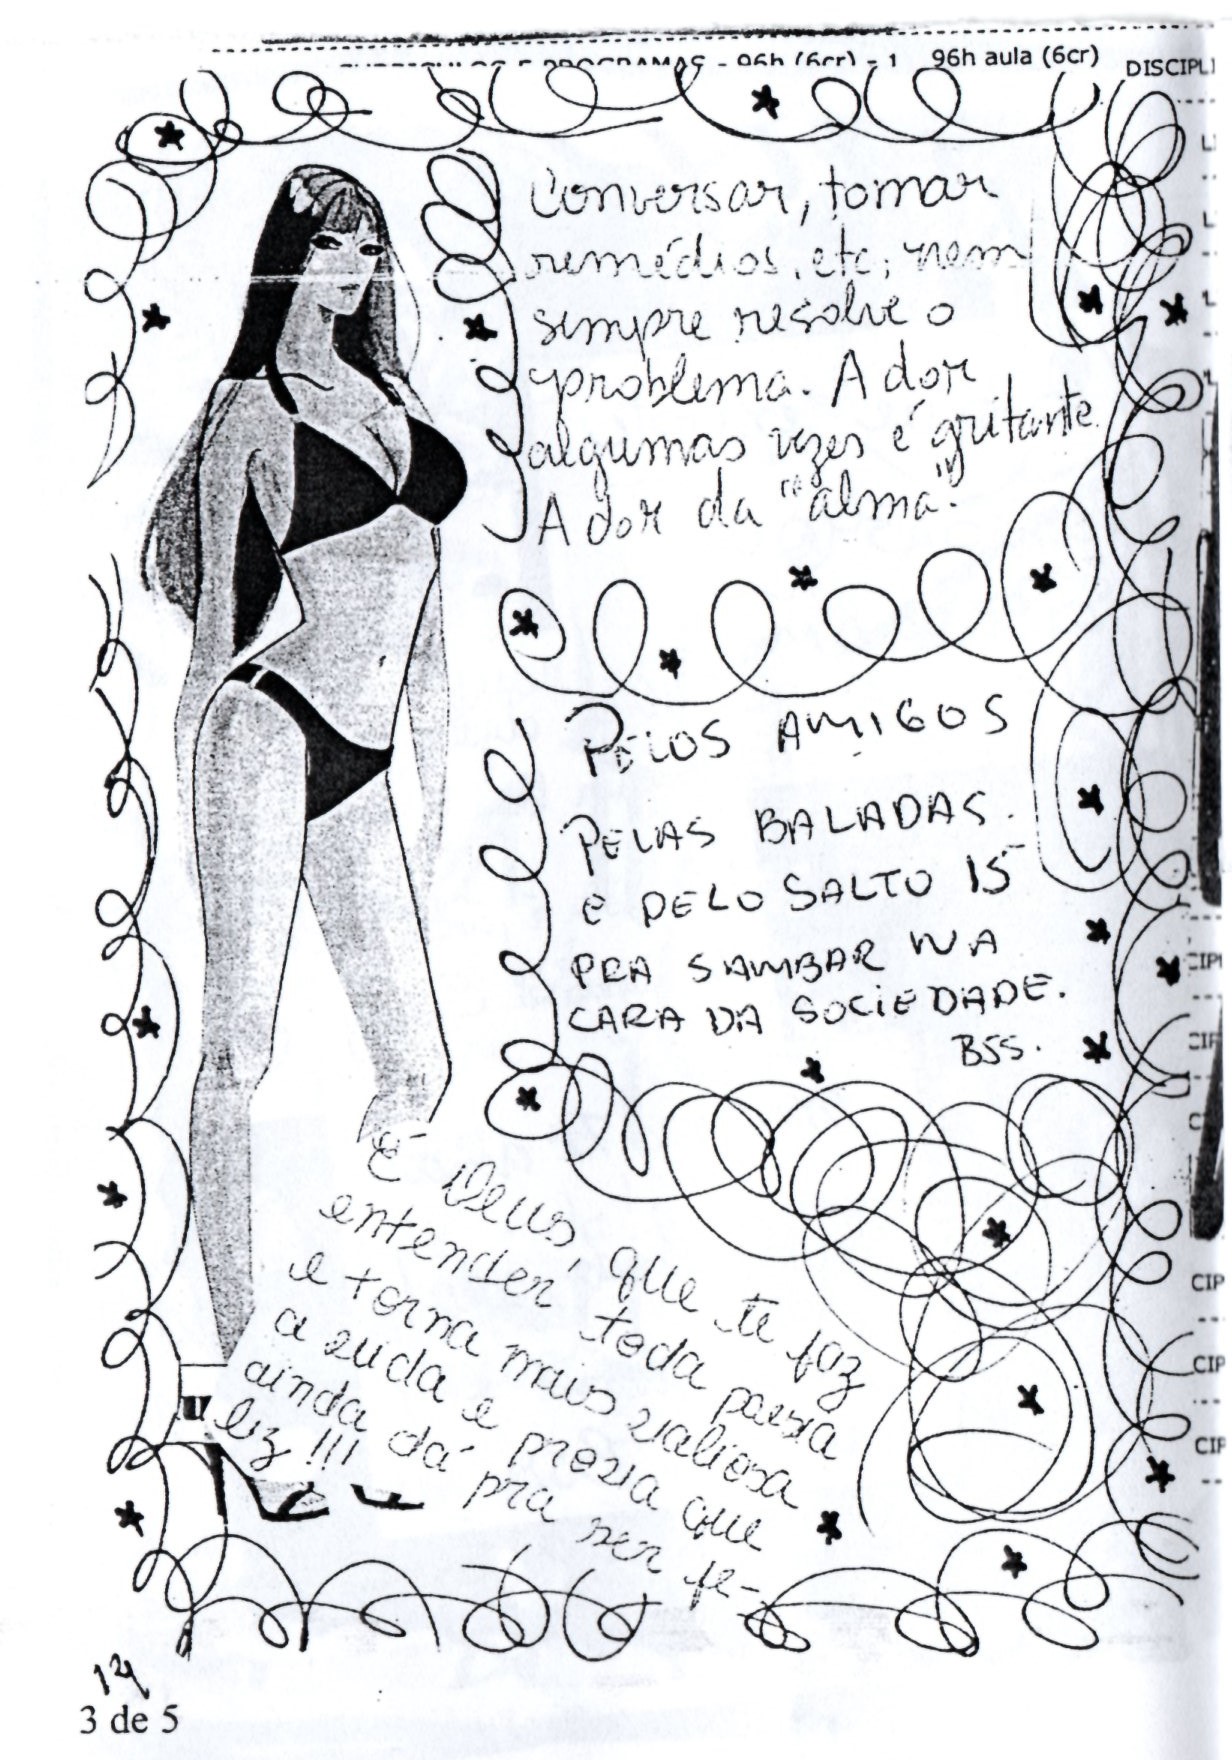 CURRICULOS E PROGRAMAS - 96h (6cr) - 1 96h aula (6cr)
DISCIPLI
Conversar, tomar
remédios, etc, nem
sempre resolve o
problema. A dor
algumas vezes é gritante.
A dor da "alma".
PELOS AMIGOS
PELAS BALADAS.
E PELO SALTO 15
PRA SAMBAR NA
CARA DA SOCIEDADE.
BSS.
É Deus, que te faz
entender toda poesia
e torna mais valiosa
a vida e prosia que
ainda dá pra ser fe-
liz !!!
CIPI
CIP
CIP
CIP
CIP
3 de 5